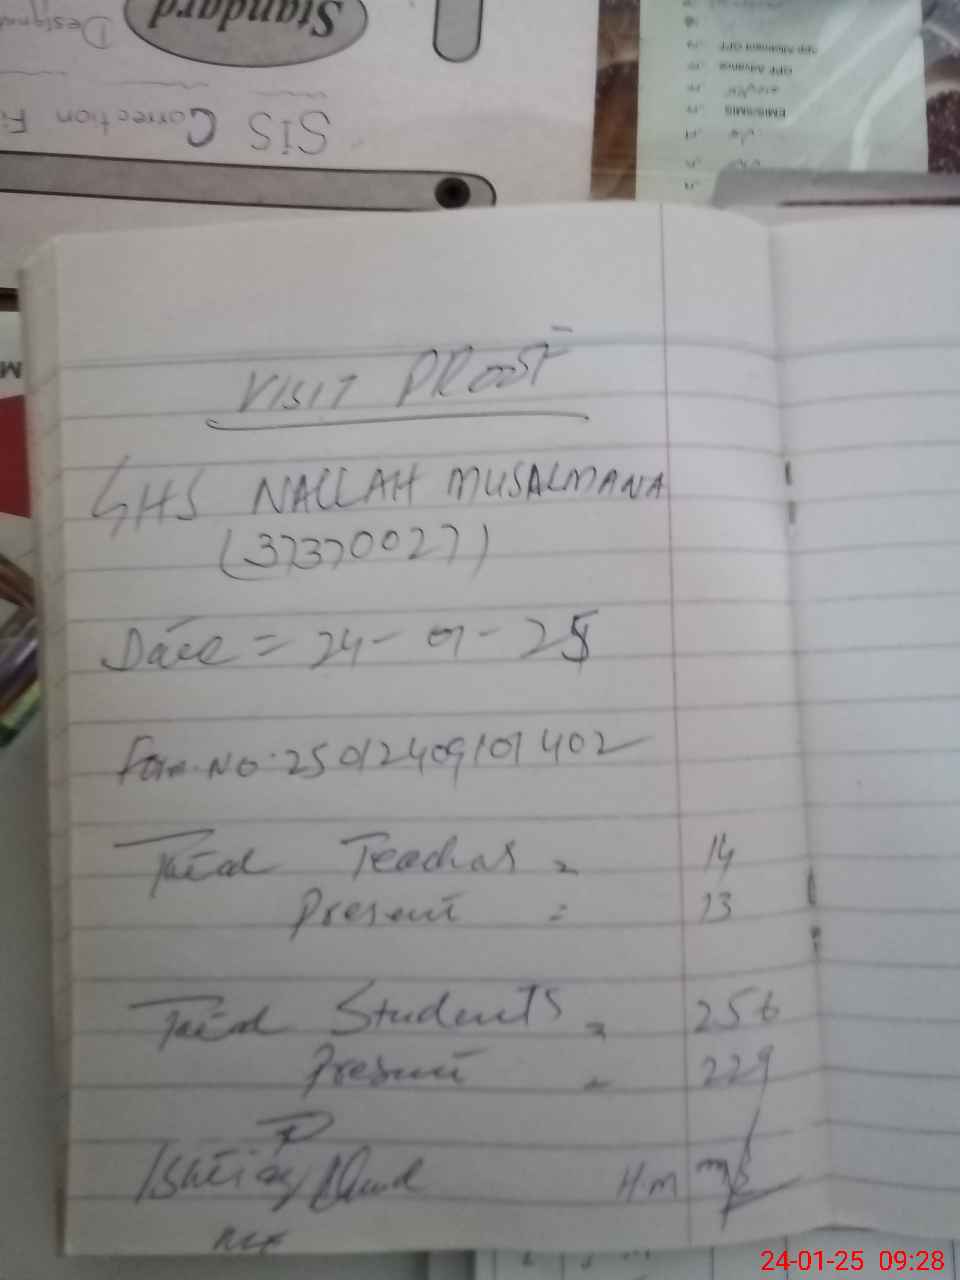 Standard
Design
SIS Correction Fi
GPF Advance
EMIS/SMIS
M
VISIT PROOF
GHS NALLAH MUSALMANA
(37370027)
Date = 24-01-25
Form.No.25012409101402
Total Teachers = 14
Present = 13
Total Students = 256
Present = 229
Ishtiaq Ahmad H.M
24-01-25 09:28